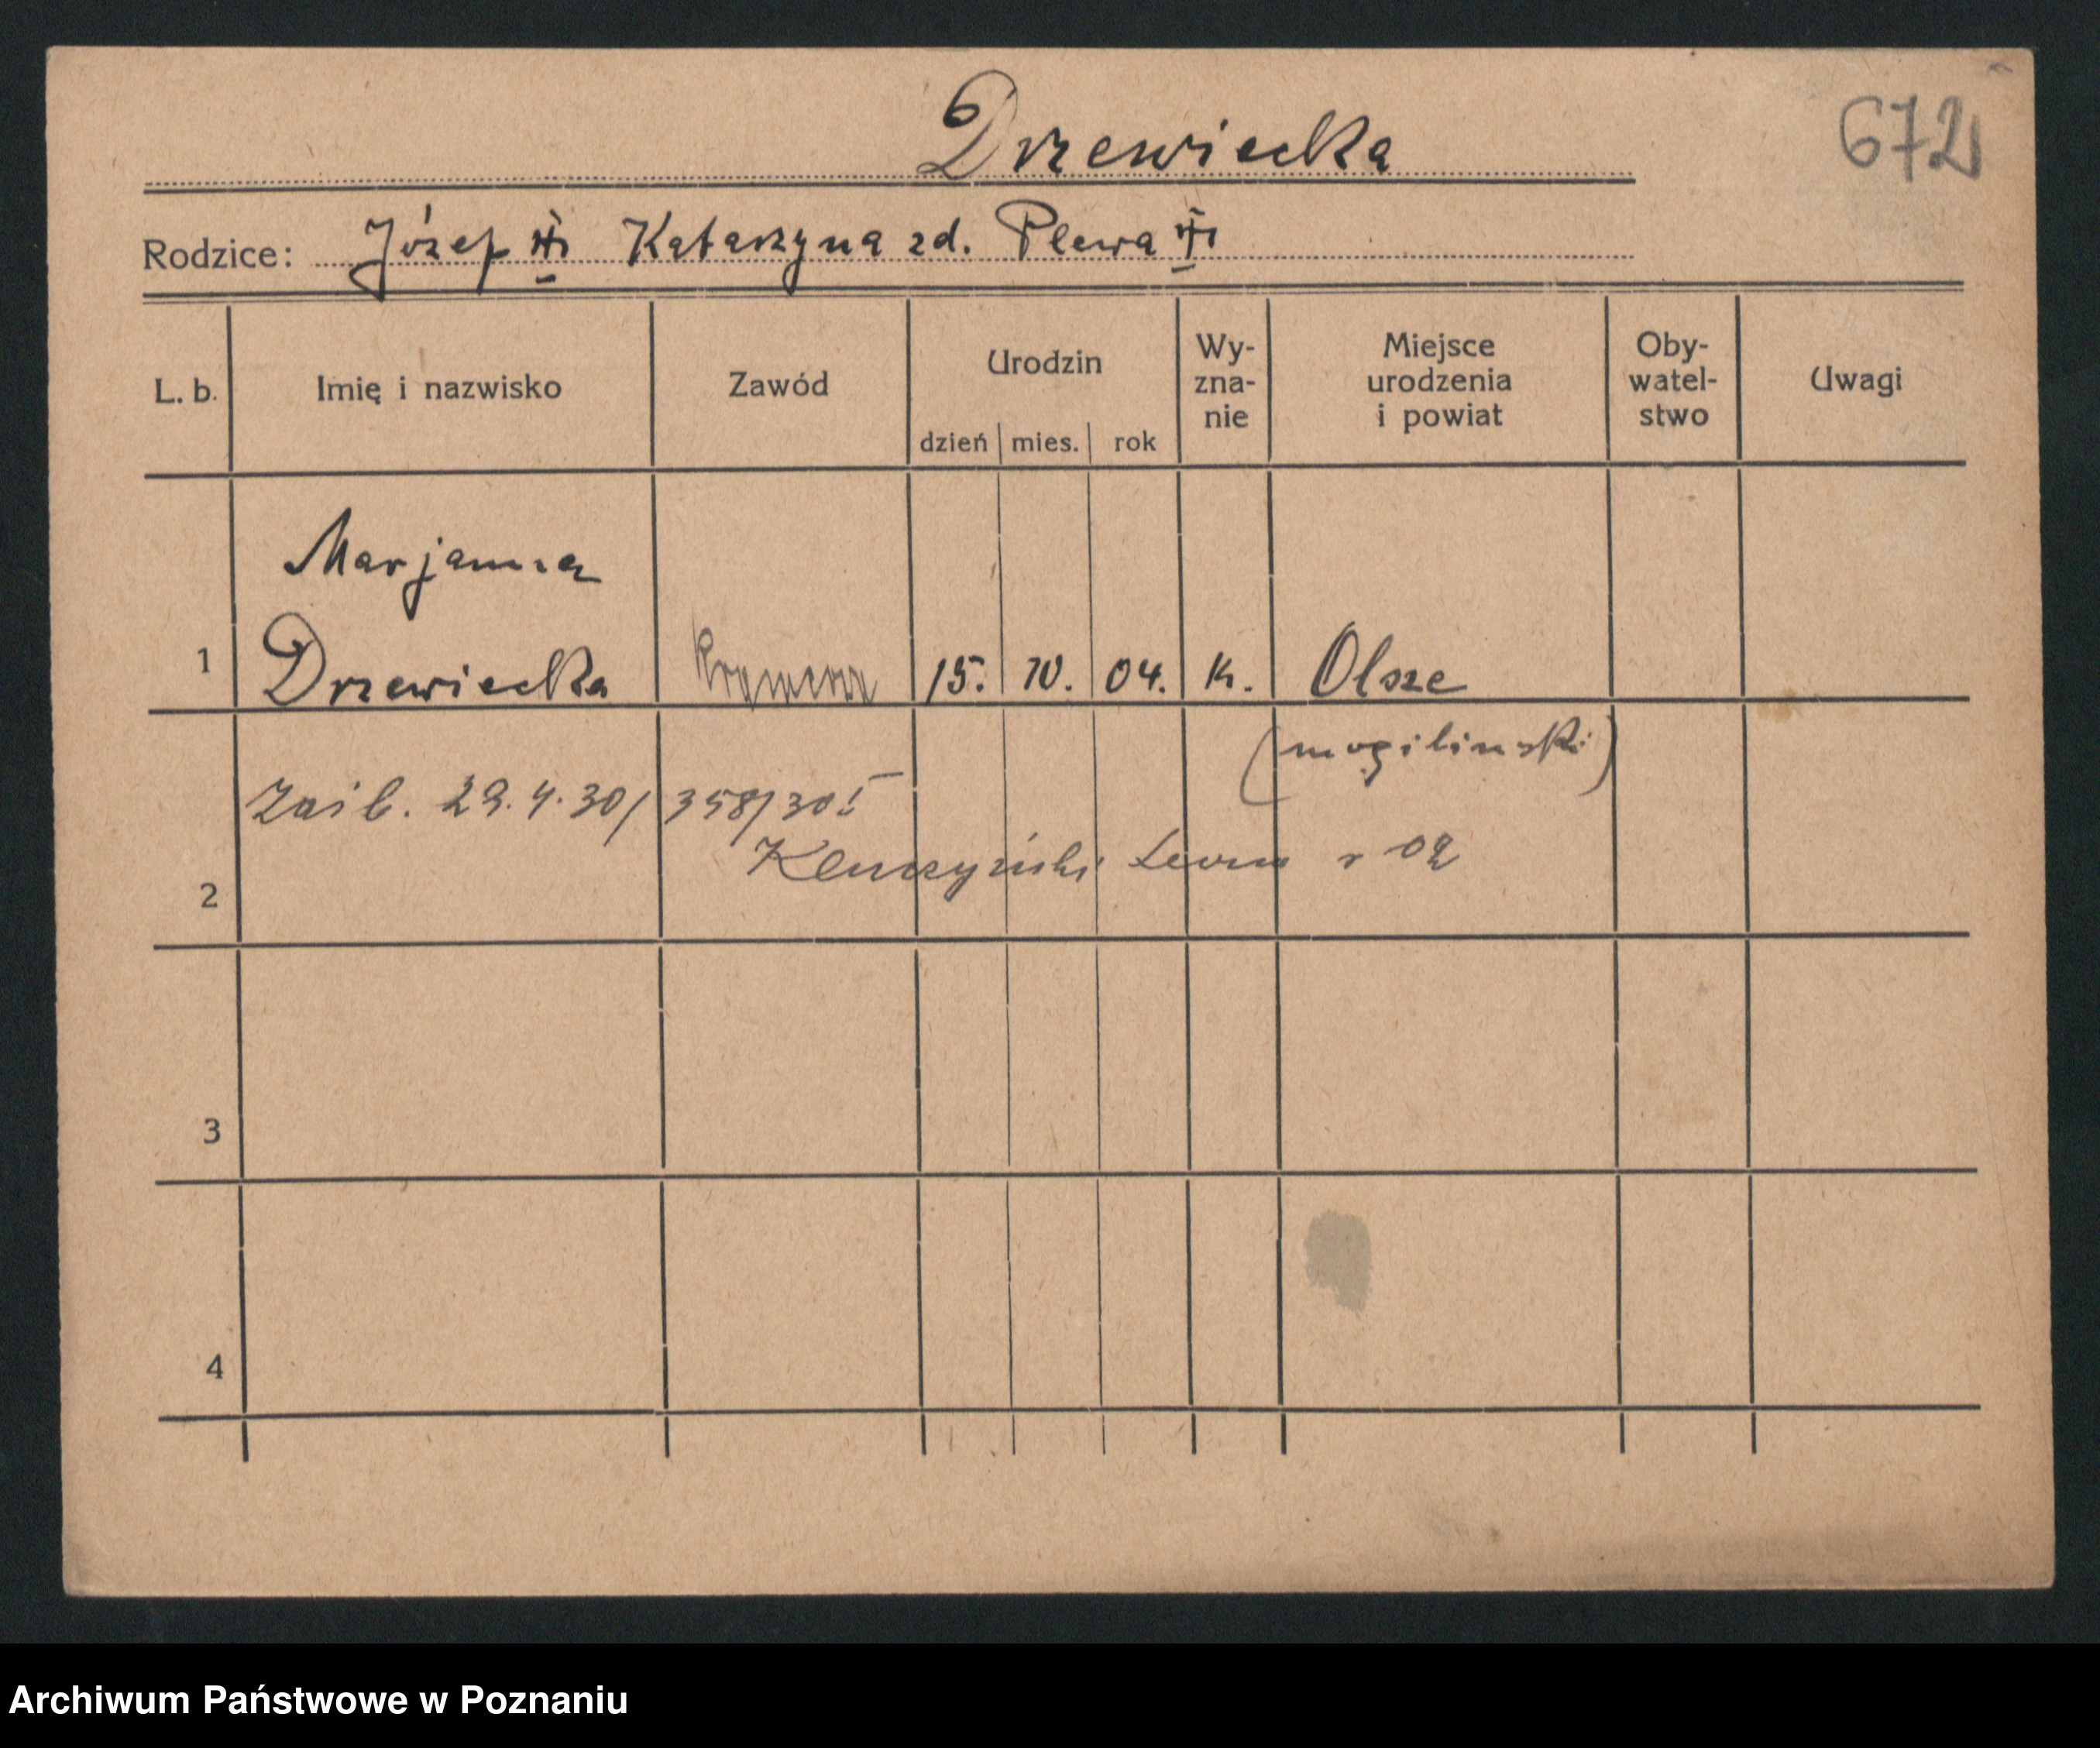 Drzewiecka
672
Rodzice: Józef Katarzyna zd. Plewa
L. b. Imię i nazwisko Zawód Urodzin dzień mies. rok Wy- zna- nie Miejsce urodzenia i powiat Oby- watel- stwo Uwagi
Marjanna
1 Drzewiecka 15. 10. 04. k. Olsze
(mogilinski)
29.4.30/ 358/30
r 02
2
3
4
Archiwum Państwowe w Poznaniu